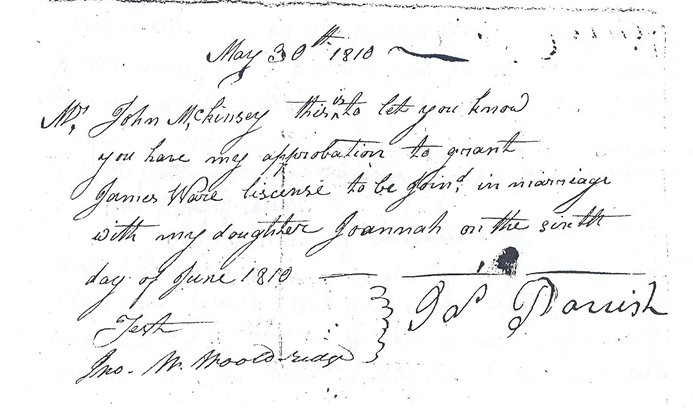 May 30th 1810
Mr. John McKinsey this is to let you know
you have my approbation to grant
James Ware liscense to be Joind. in marriage
with my daughter Joannah on the sixth
day of June 1810
Parrish
Test
Jno. W. Wooldridge